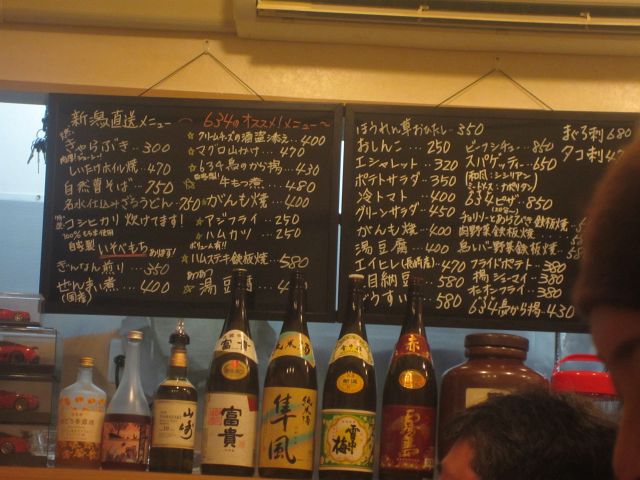 新潟直送メニュー
きゃらぶき…300
しいたけホイル焼…470
自然薯そば…750
名水仕込みざるうどん…750
コシヒカリ炊けてます!
100%もち米使用
自家製 いそべもち あります!
ぎんなん煎り…350
ぜんまい煮…400
(国産)
〜634のオススメ!メニュー〜
☆クリームチーズの酒盗添え…400
☆マグロ山かけ…470
☆634鳥のから揚…430
☆牛もつ煮…480
☆がんもの焼…400
☆アジフライ…250
☆ハムカツ…250
ボリューム有り!
☆ハムステーキ鉄板焼…580
あつあつ
☆湯豆腐
ほうれん草おひたし…350
おしんこ…250
エシャレット…320
ポテトサラダ…350
冷トマト…400
グリーンサラダ…450
がんも焼…400
湯豆腐…400
エイヒレ(長崎産)…470
580
580
ビーフシチュー…850
スパゲッティー…650
(和風・シシリアン
ミートソース・ナポリタン)
634ピザ…850
(20cm)
チョリソーとあらびき鉄板焼…580
肉野菜鉄板焼…580
鳥レバー野菜鉄板焼…580
フライドポテト…380
揚シューマイ…380
オニオンフライ…380
634鳥から揚…430
まぐろ刺 680
タコ刺
山崎
富貴
純米酒
隼風
雪中梅
赤
霧島